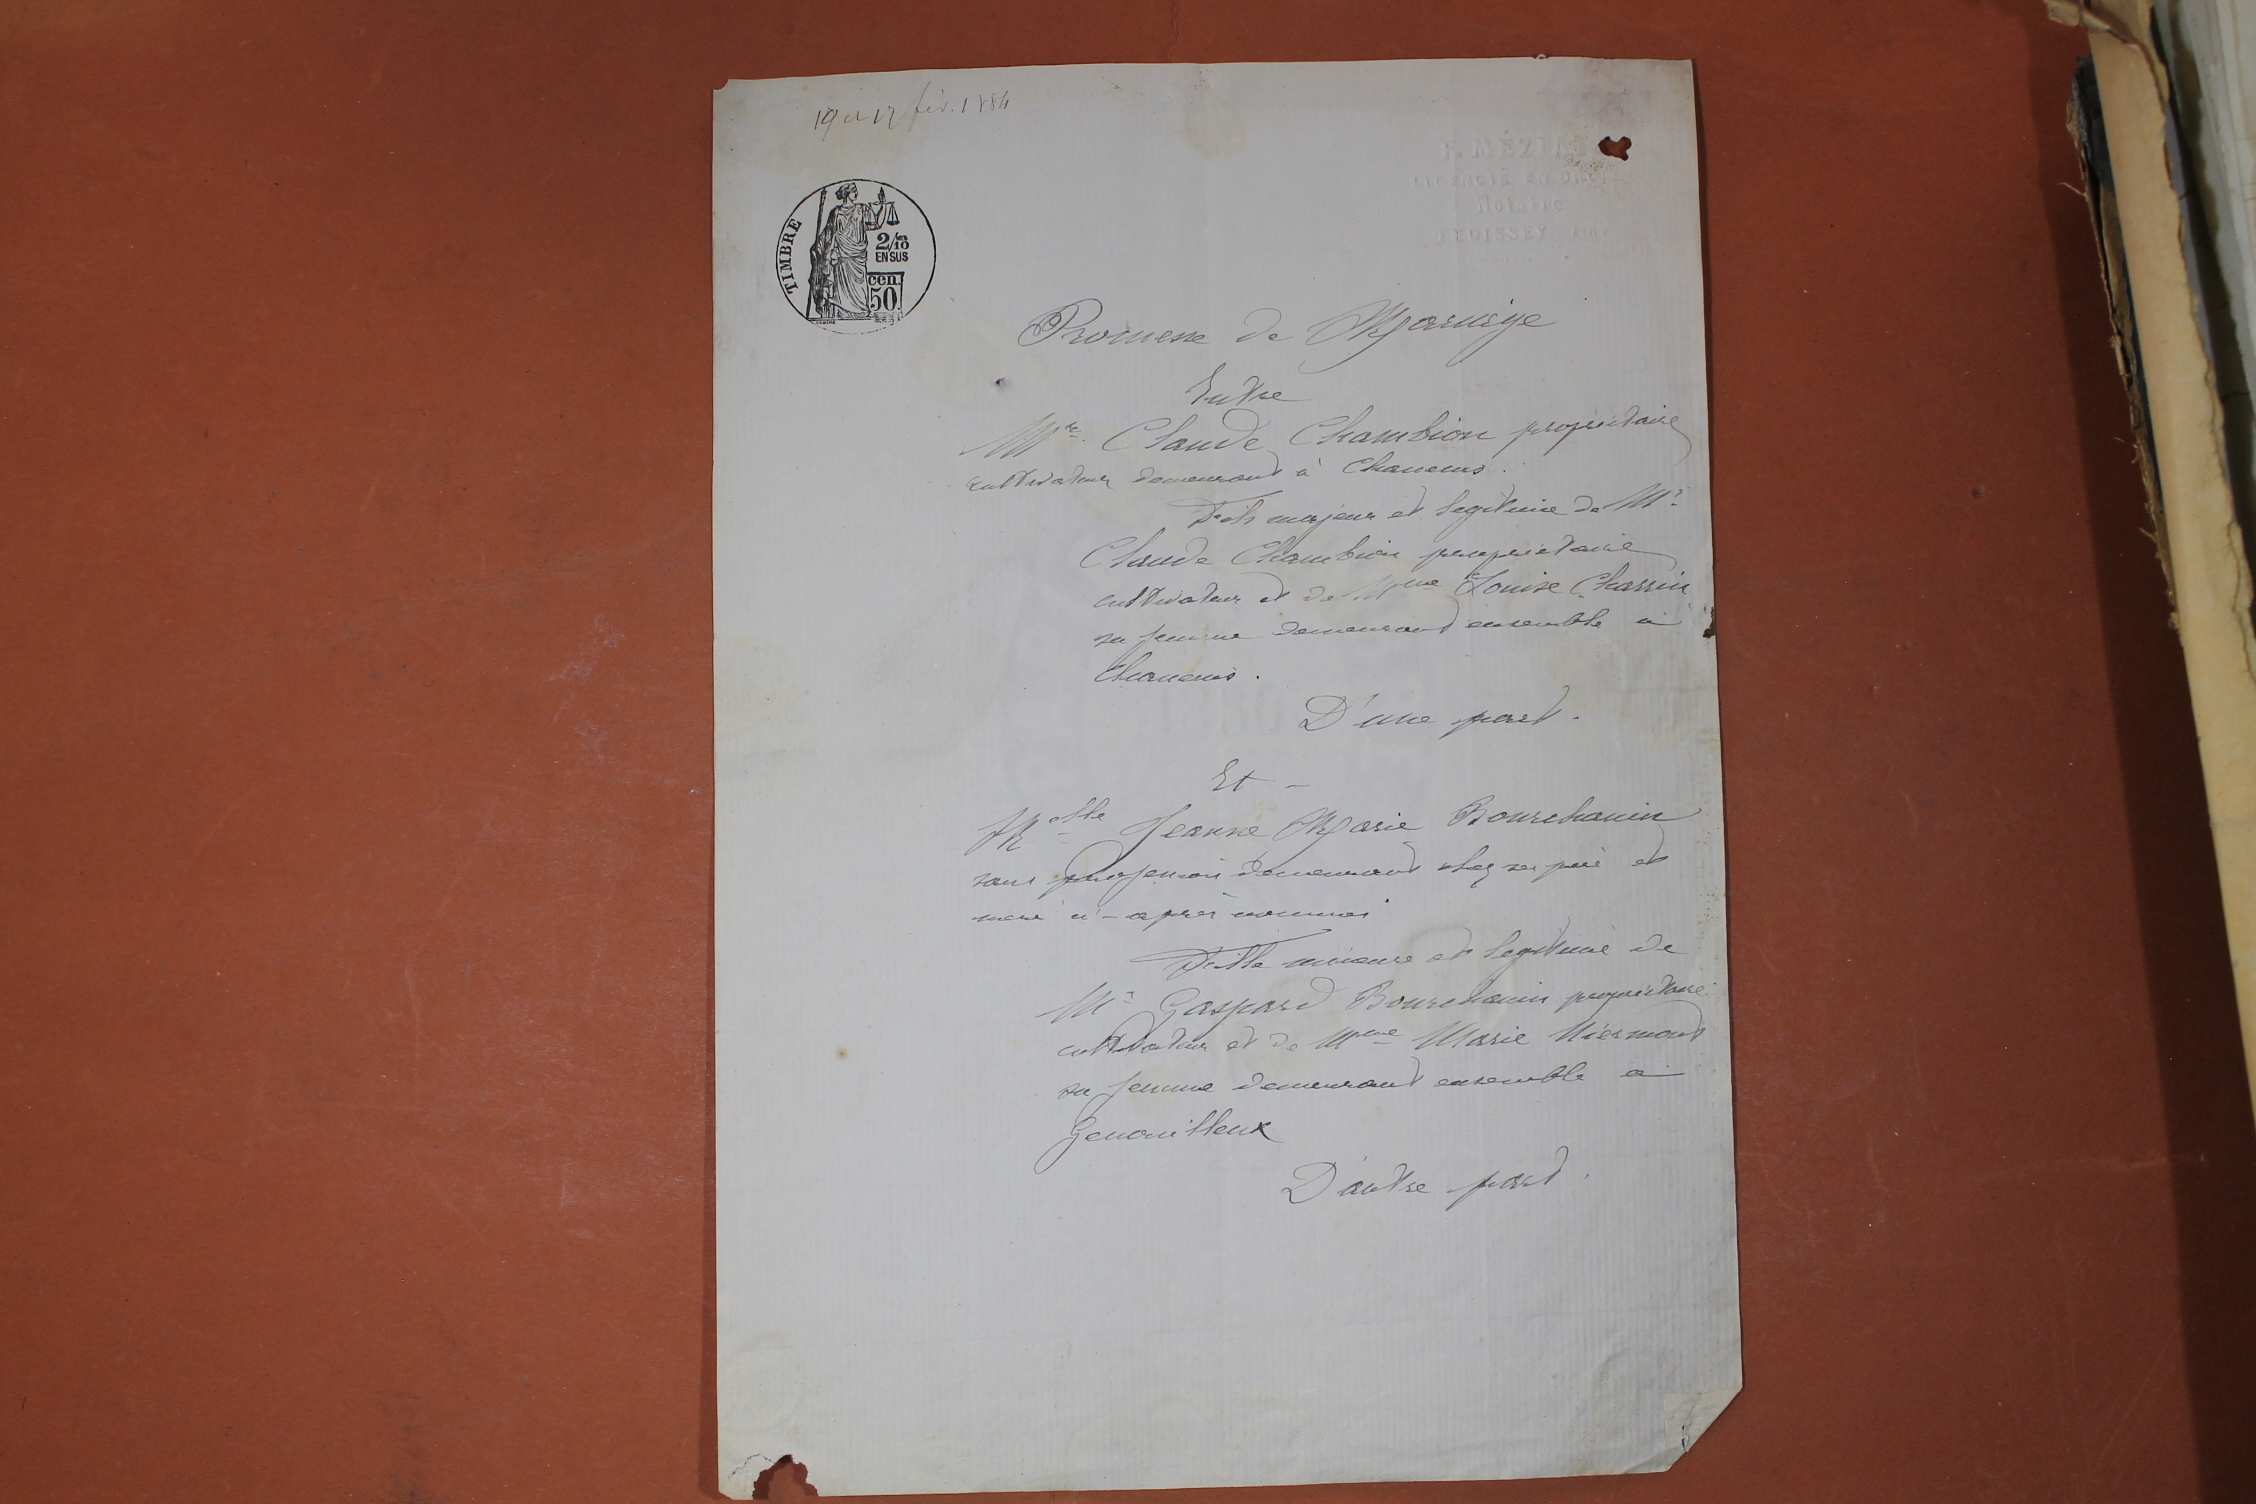 19 et 17 fév. 1884
F. MÉZIAT
LICENCIÉ EN DROIT
Notaire
TIMBRE
2/10es
EN SUS
cen.
50
Promesse de Mariage
Entre
Mr. Claude Chambion propriétaire
cultivateur demeurant à Chaneins.
Fils majeur et légitime de Mr
Claude Chambion propriétaire
cultivateur et de Mme Louise Charrin
sa femme demeurant ensemble à
Chaneins.
D'une part.
Et -
Melle Jeanne Marie Bourchanin
sans profession demeurant chez ses père et
mère ci-après nommés
Fille mineure et légitime de
Mr Gaspard Bourchanin propriétaire
cultivateur et de Mme Marie Miermont
sa femme demeurant ensemble à
Genouilleux
D'autre part.